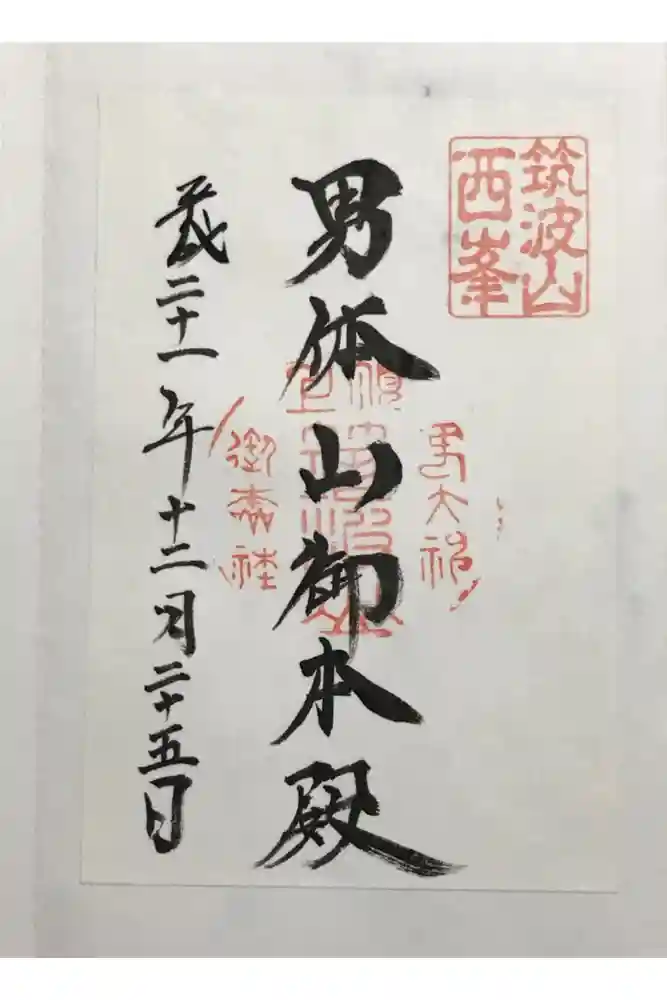 筑波山
西峯
男体山御本殿
男大神
御本社
平成二十一年十二月二十五日